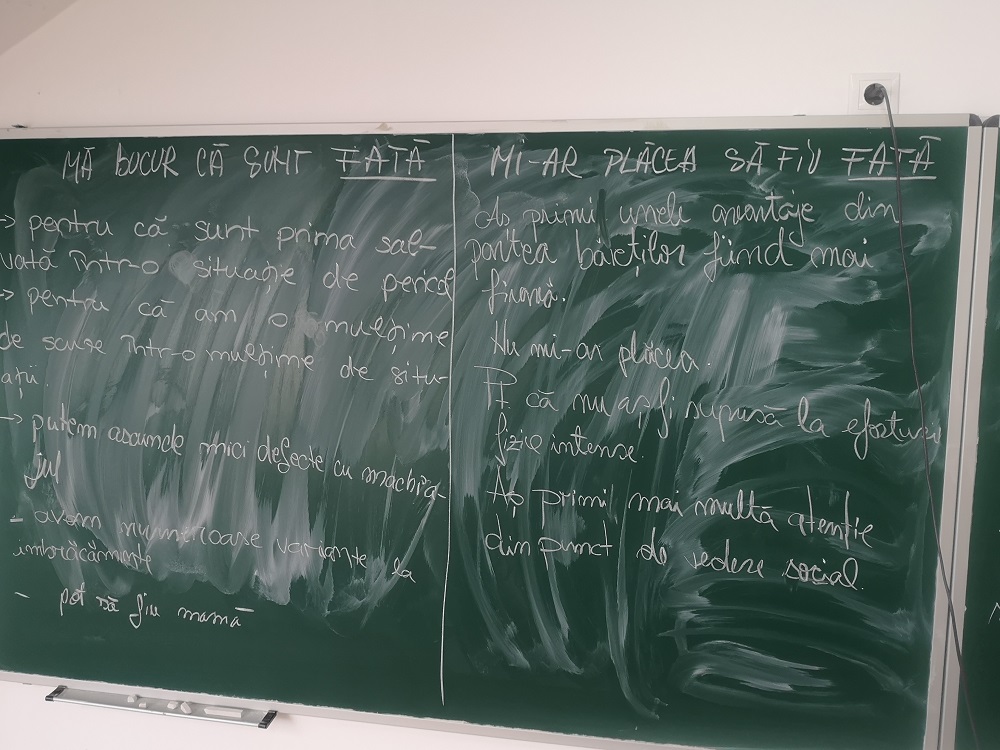 MĂ BUCUR CĂ SUNT FATĂ
→ pentru că sunt prima sal-
vată într-o situație de pericol
→ pentru că am o mulțime
de scuse într-o mulțime de situ-
ații.
→ putem ascunde mici defecte cu machia-
jul
- avem numeroase variante la
îmbrăcăminte
- pot să fiu mamă
MI-AR PLĂCEA SĂ FIU FATĂ
Aș primi unele avantaje din
partea băieților fiind mai
firavă.
Nu mi-ar plăcea.
Pt. că nu aș fi supusă la eforturi
fizice intense.
Aș primi mai multă atenție
din punct de vedere social.